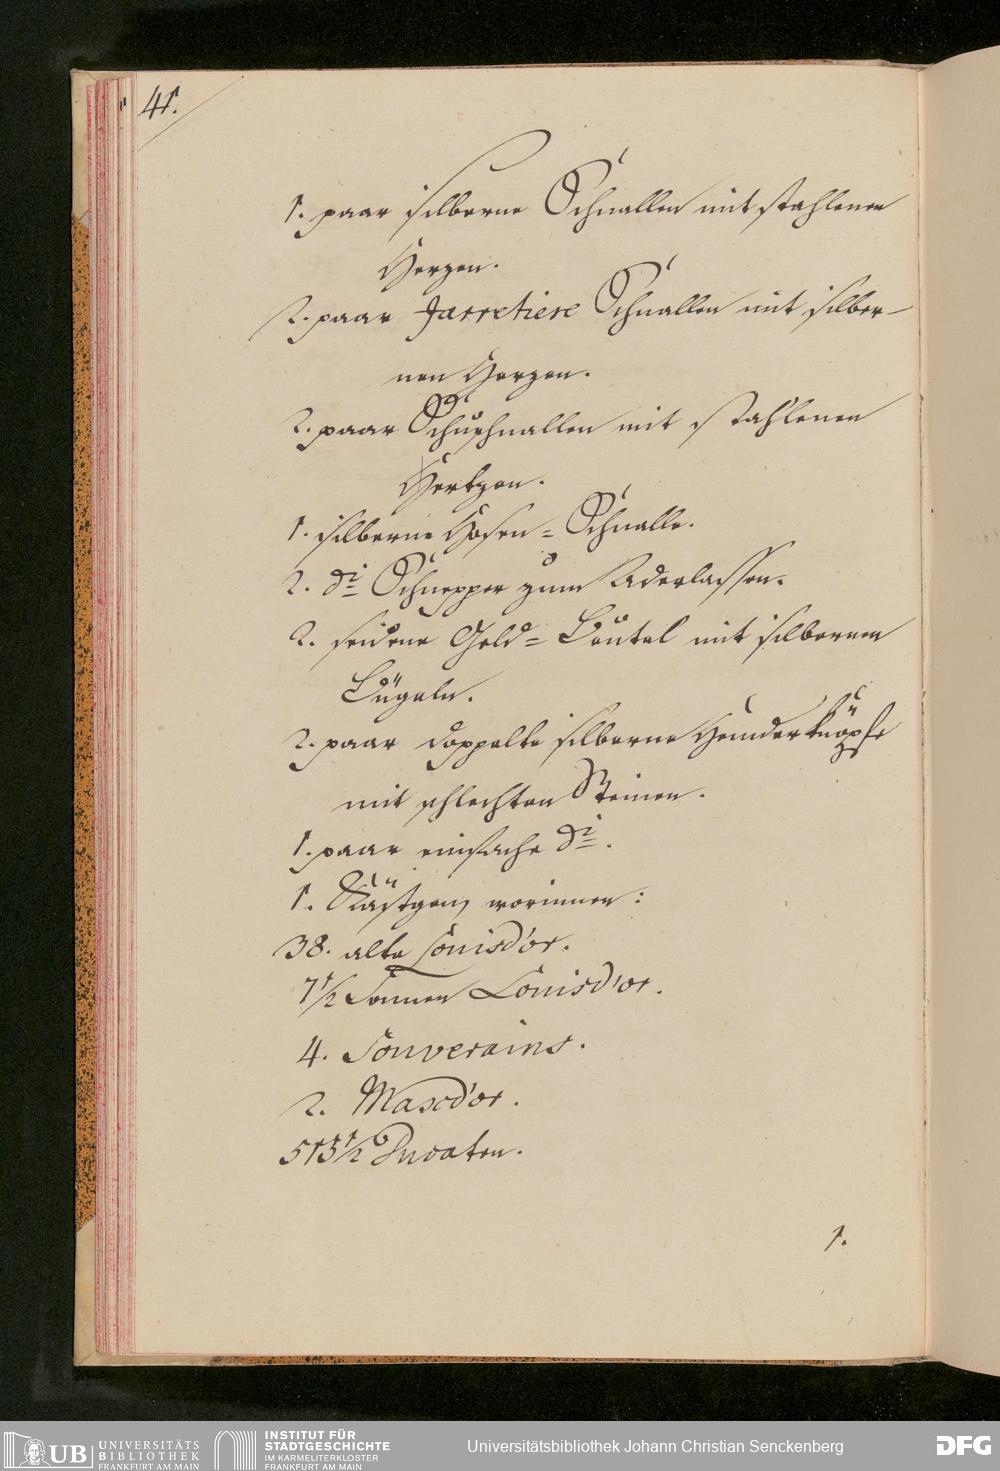 41.
1. paar silberne Schnallen mit stahlenen
Herzen.
2. paar Jarretiere Schnallen mit silber-
nen Herzen.
2. paar Schuschnallen mit stahlenen
Hertzen.
1. silberne Hosen=Schnalle.
2. do Schnepper zum Aderlassen.
2. seidene Geld=Beutel mit silbernen
Bügeln.
2. paar doppelte silberne Hemderknöpfe
mit schlechten Steinen.
1. paar einfache do.
1. Kästgen, worinnen:
38. alte Louisd'or.
7 1/2 Sonnen Louisd'or.
4. Souverains.
2. Maxd'or.
513 1/2 Ducaten.
1.
UB UNIVERSITÄTS
BIBLIOTHEK
FRANKFURT AM MAIN
INSTITUT FÜR
STADTGESCHICHTE
IM KARMELITERKLOSTER
FRANKFURT AM MAIN
Universitätsbibliothek Johann Christian Senckenberg
DFG